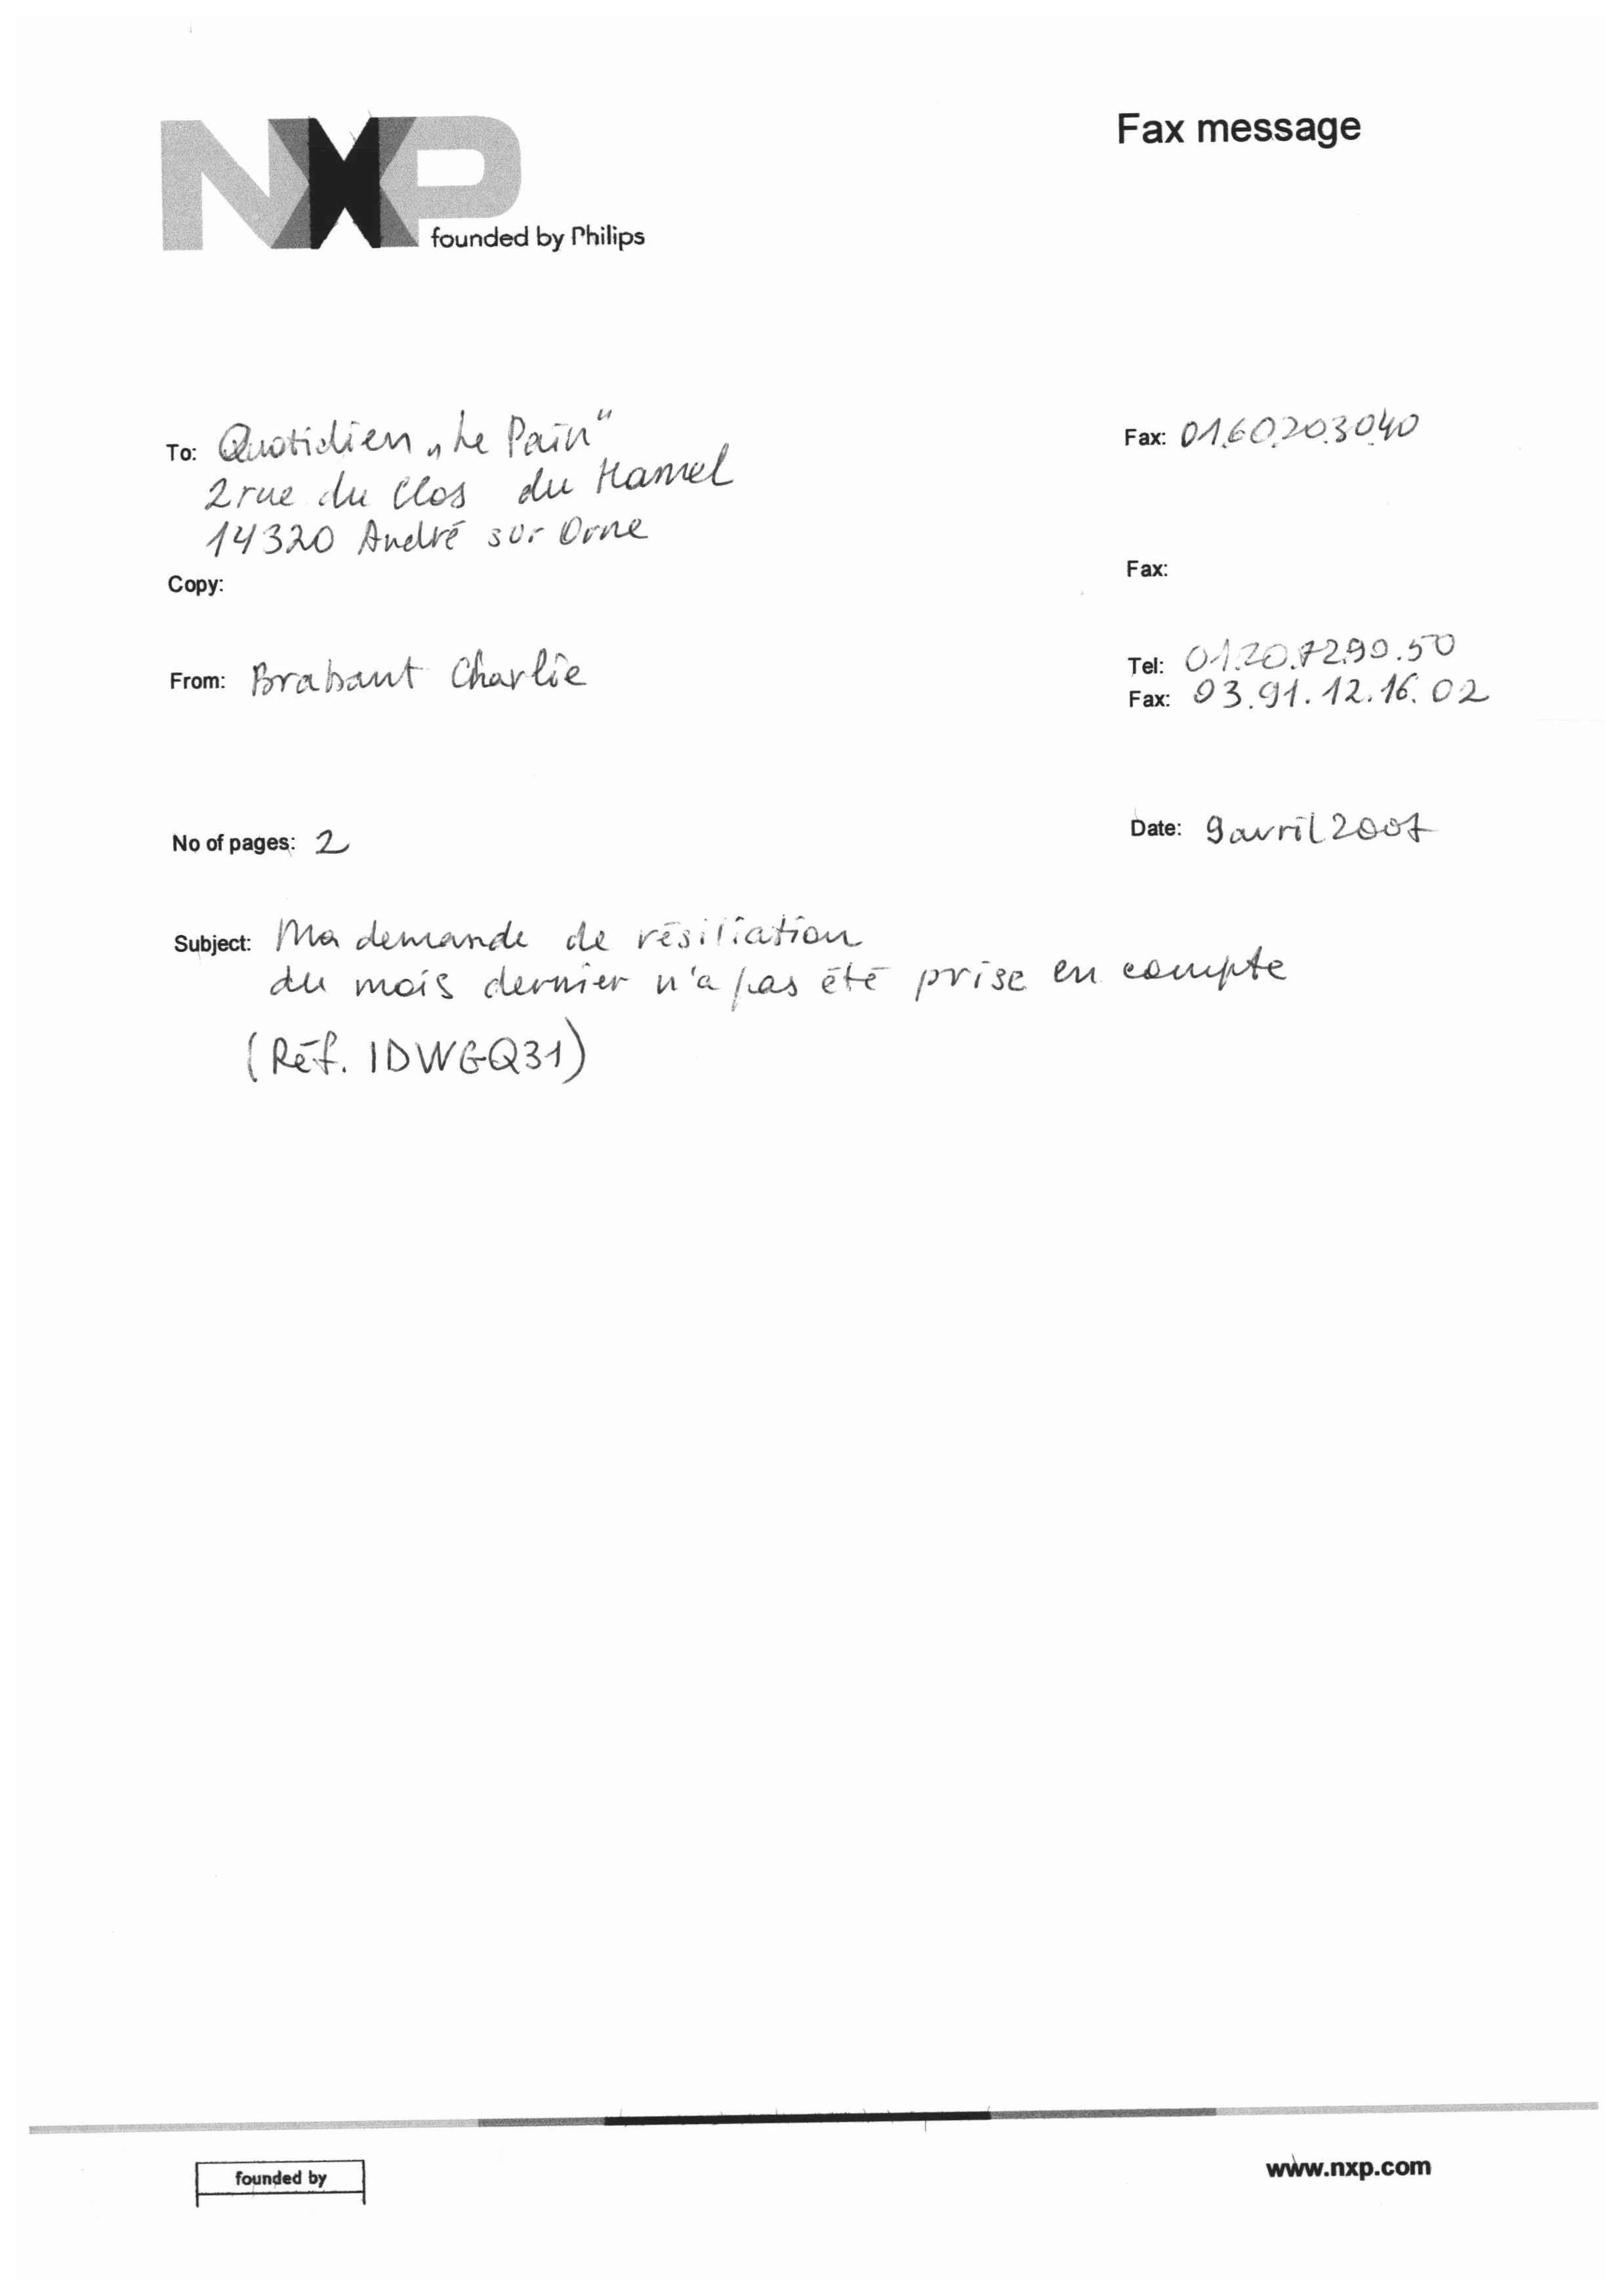 NXP
founded by Philips
Fax message
To: Quotidien „Le Pain"
2 rue du Clos du Hamel
14320 André sur Orne
Fax: 01.60.20.30.40
Copy:
Fax:
From: Brabant Charlie
Tel: 01.20.72.90.50
Fax: 03.91.12.16.02
No of pages: 2
Date: 9 avril 2007
Subject: Ma demande de résiliation
du mois dernier n'a pas été prise en compte
(Réf. IDWGQ31)
founded by
www.nxp.com